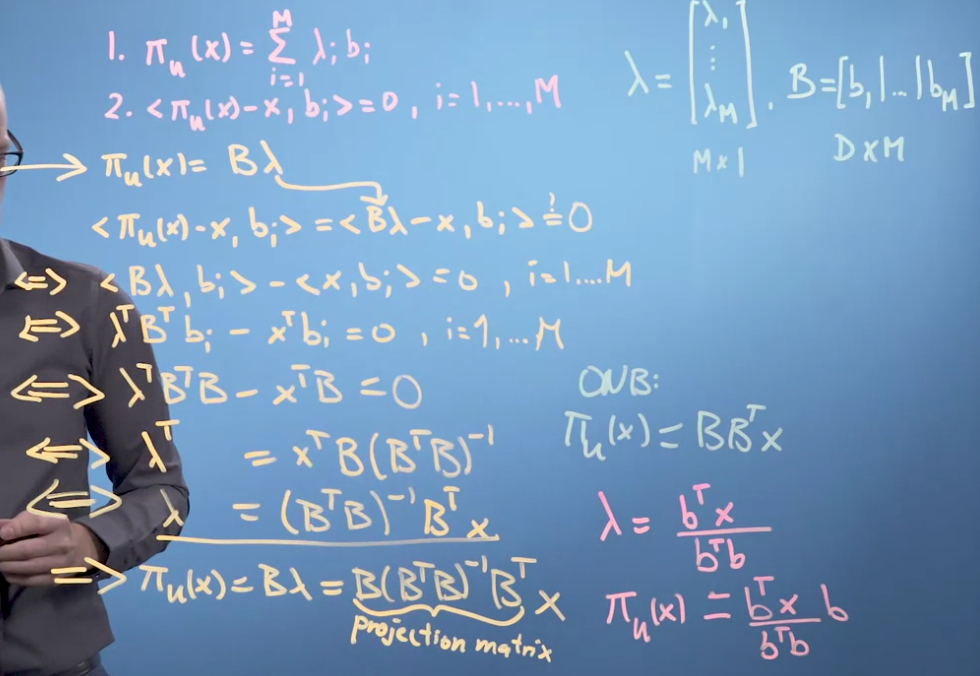 1. π_u(x) = Σ_{i=1}^{M} λ_i b_i
2. <π_u(x)-x, b_i> = 0, i=1,...,M
λ = [λ_1 ⋮ λ_M], B=[b_1|...|b_M]
M×1 D×M
→ π_u(x) = Bλ
<π_u(x)-x, b_i> = <Bλ-x, b_i> =! 0
⇔ <Bλ, b_i> - <x, b_i> = 0, i=1....M
⇔ λ^T B^T b_i - x^T b_i = 0, i=1,...M
⇔ λ^T B^T B - x^T B = 0
⇔ λ^T = x^T B(B^T B)^{-1}
⇔ λ = (B^T B)^{-1} B^T x
⇒ π_u(x) = Bλ = B(B^T B)^{-1} B^T x
projection matrix
ONB:
π_u(x) = BB^T x
λ = b^T x / b^T b
π_u(x) = b^T x / b^T b b